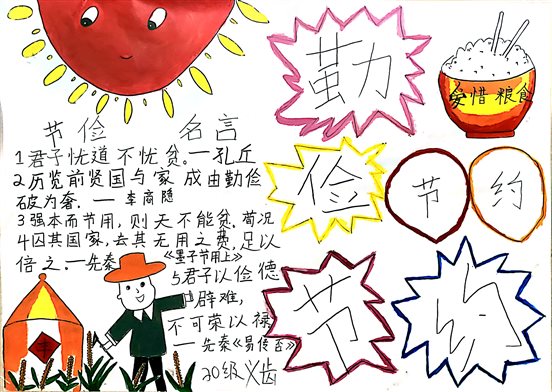 节俭 名言
1君子忧道不忧贫。—孔丘
2历览前贤国与家 成由勤俭
破为奢. — 李商隐
3强本而节用,则天不能贫.荀况
4因其国家,去其无用之费,足以
倍之.—先秦《墨子节用上》
5君子以俭德
辟难,
不可荣以禄
— 先秦《易传否》
20级 齿
勤
俭
节 约
节
约
爱惜 粮食
丰